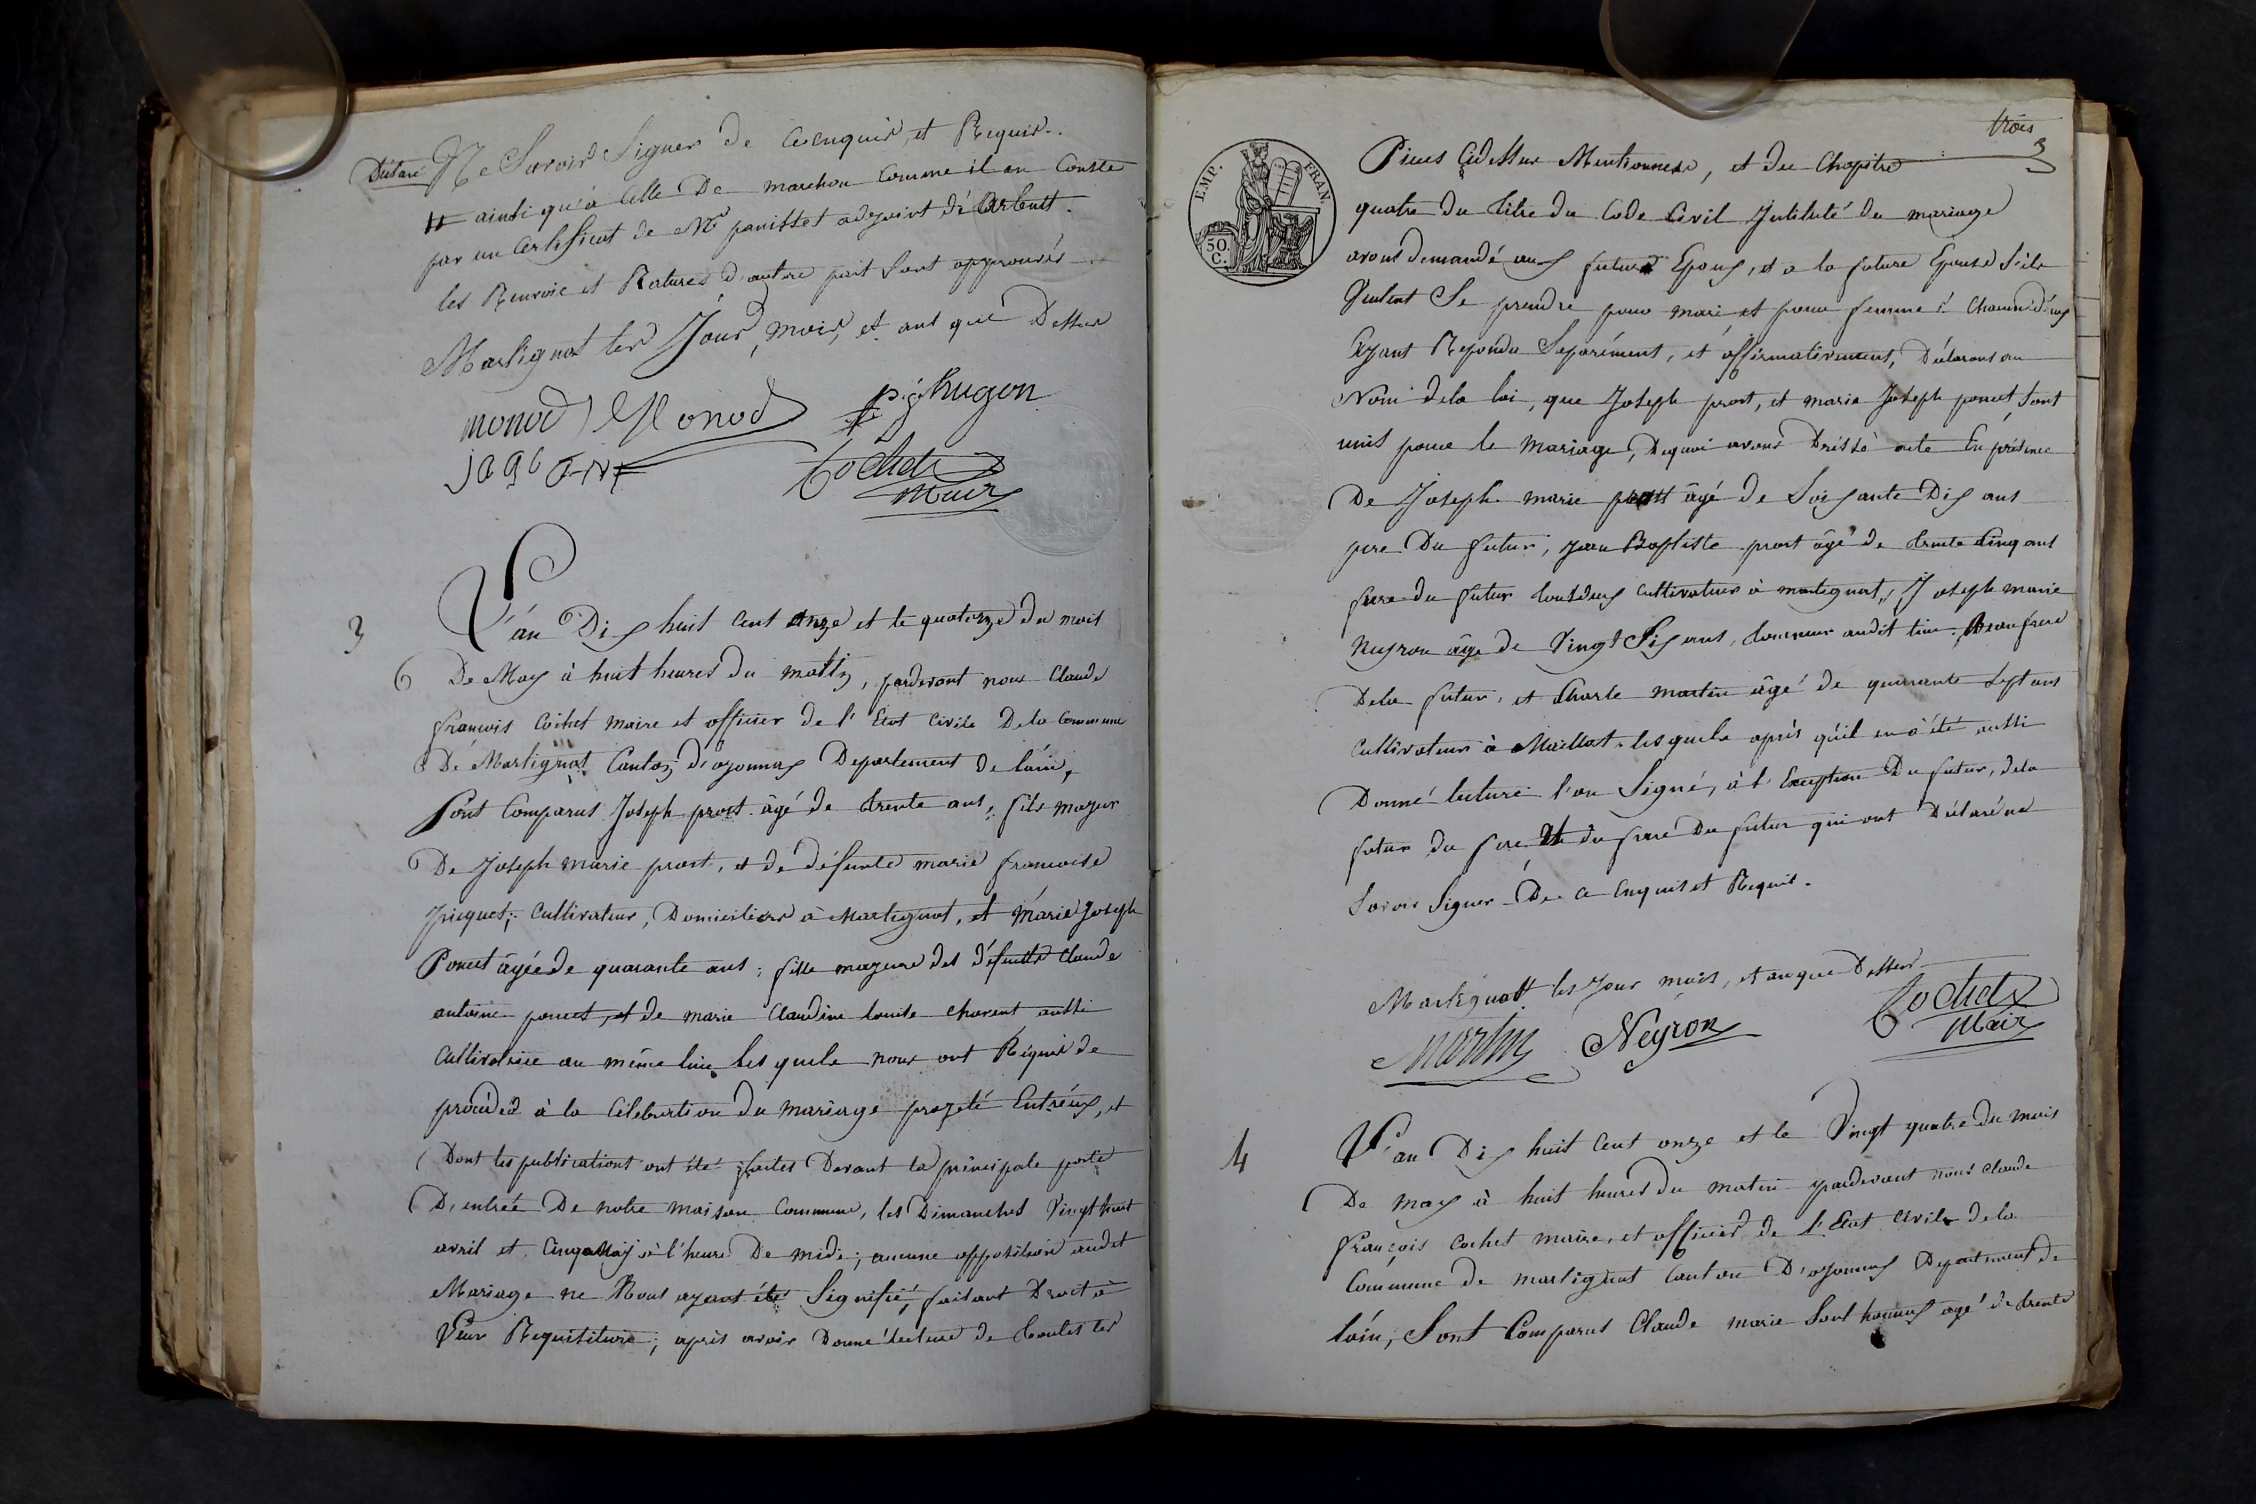 Déclaré Ne Savoir Signer de ce enquis, et Requis.
ainsi qu'à Celle De marchon Comme il en Conste
par un Certificat de Mr panisset adjoint d'Arbent.
les Renvoie et Ratures d'autre part Sont approuvés
Martignat les Jour, mois, et ant que Dessus
monod Monod p. j. hugon
Cochet
Maire
3
L'an Dix huit Cent onze et le quatorze du mois
De May à huit heures du matin, pardevant nous Claude
françois Cochet maire et officier de l'Etat Civile De la Commune
De Martignat Canton d'oyonnax Departement de l'ain,
Sont Comparus Joseph prost âgé de trente ans, fils majeur
De Joseph marie prost, et de défunte marie francoise
picquet; Cultivateur, Domiciliers à Martignat, et Marie Joseph
Poncet âgée de quarante ans; fille majeure des défunts Claude
antoine poncet, et de marie Claudine Louise Chavent aussi
Cultivatrice au même lieu Les quels nous ont Réquis de
procéder à la Célébration du mariage projeté Entréux, et
Dont les publications ont été faites Devant la principale porte
D'entrée De notre maison Commune, les Dimanches Vingt huit
avril et Cinq May à l'heure De midi; aucune opposition audit
Mariage ne Nous ayant été Signifié, faisant Droit à
Leur Requisitoire; après avoir Donné lecture de toutes les
trois
3
EMP. FRAN.
50.
C.
Pieces Cidessus Mentionnees, et du Chapitre
quatre du titre du Code Civil Intitulé du mariage
avons demandé aux future Epoux, et a la future Epouse S'ils
Veulent Se prendre pour mari et pour femme: Chacun d'eux
Ayant Repondu Separément, et affirmativement, Déclarons au
Nom de la loi, que Joseph prost, et marie Joseph poncet, Sont
unis pour le Mariage, Dequoi avons Dréssé acte En présence
De Joseph marie prost âgé de Soixante Dix ans
pere Du futur, Jean Baptiste prost âgé de trente Cinq ans
frere du futur tousdeux Cultivateur à martignat, Joseph marie
Neyron âgé de Vingt Six ans, tourneur audit lieu Beaufrere
Dela futur, et Charle martin âgé de quarante Sept ans
Cultivateur à Maillat. lesquels après qu'il en a été aussi
Donné lecture l'on Signé, à l'Exception Du futur, dela
futur du pere Et du frere Du futur qui ont Déclaré ne
Savoir Signer De ce Enquis et Requis.
Martignat les Jour mois, et an que Dessus
Martin Neyron Cochet
Maire
4
L'an Dix huit Cent onze et le Vingt quatre du mois
De may à huit heures du matin pardevant nous Claude
François Cochet maire, et officier de l'Etat Civile dela
Commune de martignat Canton D'oyonnax Departement de
l'ain, Sont Comparus Claude marie âgé de trente